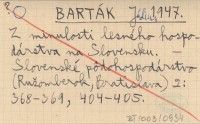 ?
BARTÁK J 1947.
Z minulosti lesného hospo-
dárstva na Slovensku. —
Slovenské pôdohospodárstvo
(Ružomberok, Bratislava) 2:
368-369, 404-405.